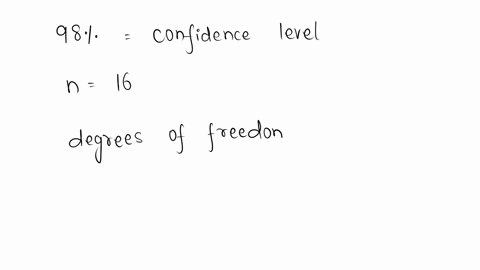 98% = confidence level
n = 16
degrees of freedon